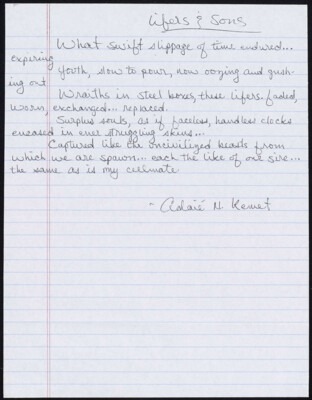 Lifers & Sons
What swift slippage of time endured...
expiring
Youth, slow to pour, now oozing and gush-
ing out
Wraiths in steel boxes, these lifers. faded,
worn, exchanged... replaced.
Surplus souls, as if faceless, handless clocks
encased in ever struggling skins...
Captured like the uncivilized beasts from
which we are spawn... each the like of one sire...
the same as is my cellmate.
- Adaié N. Kemet